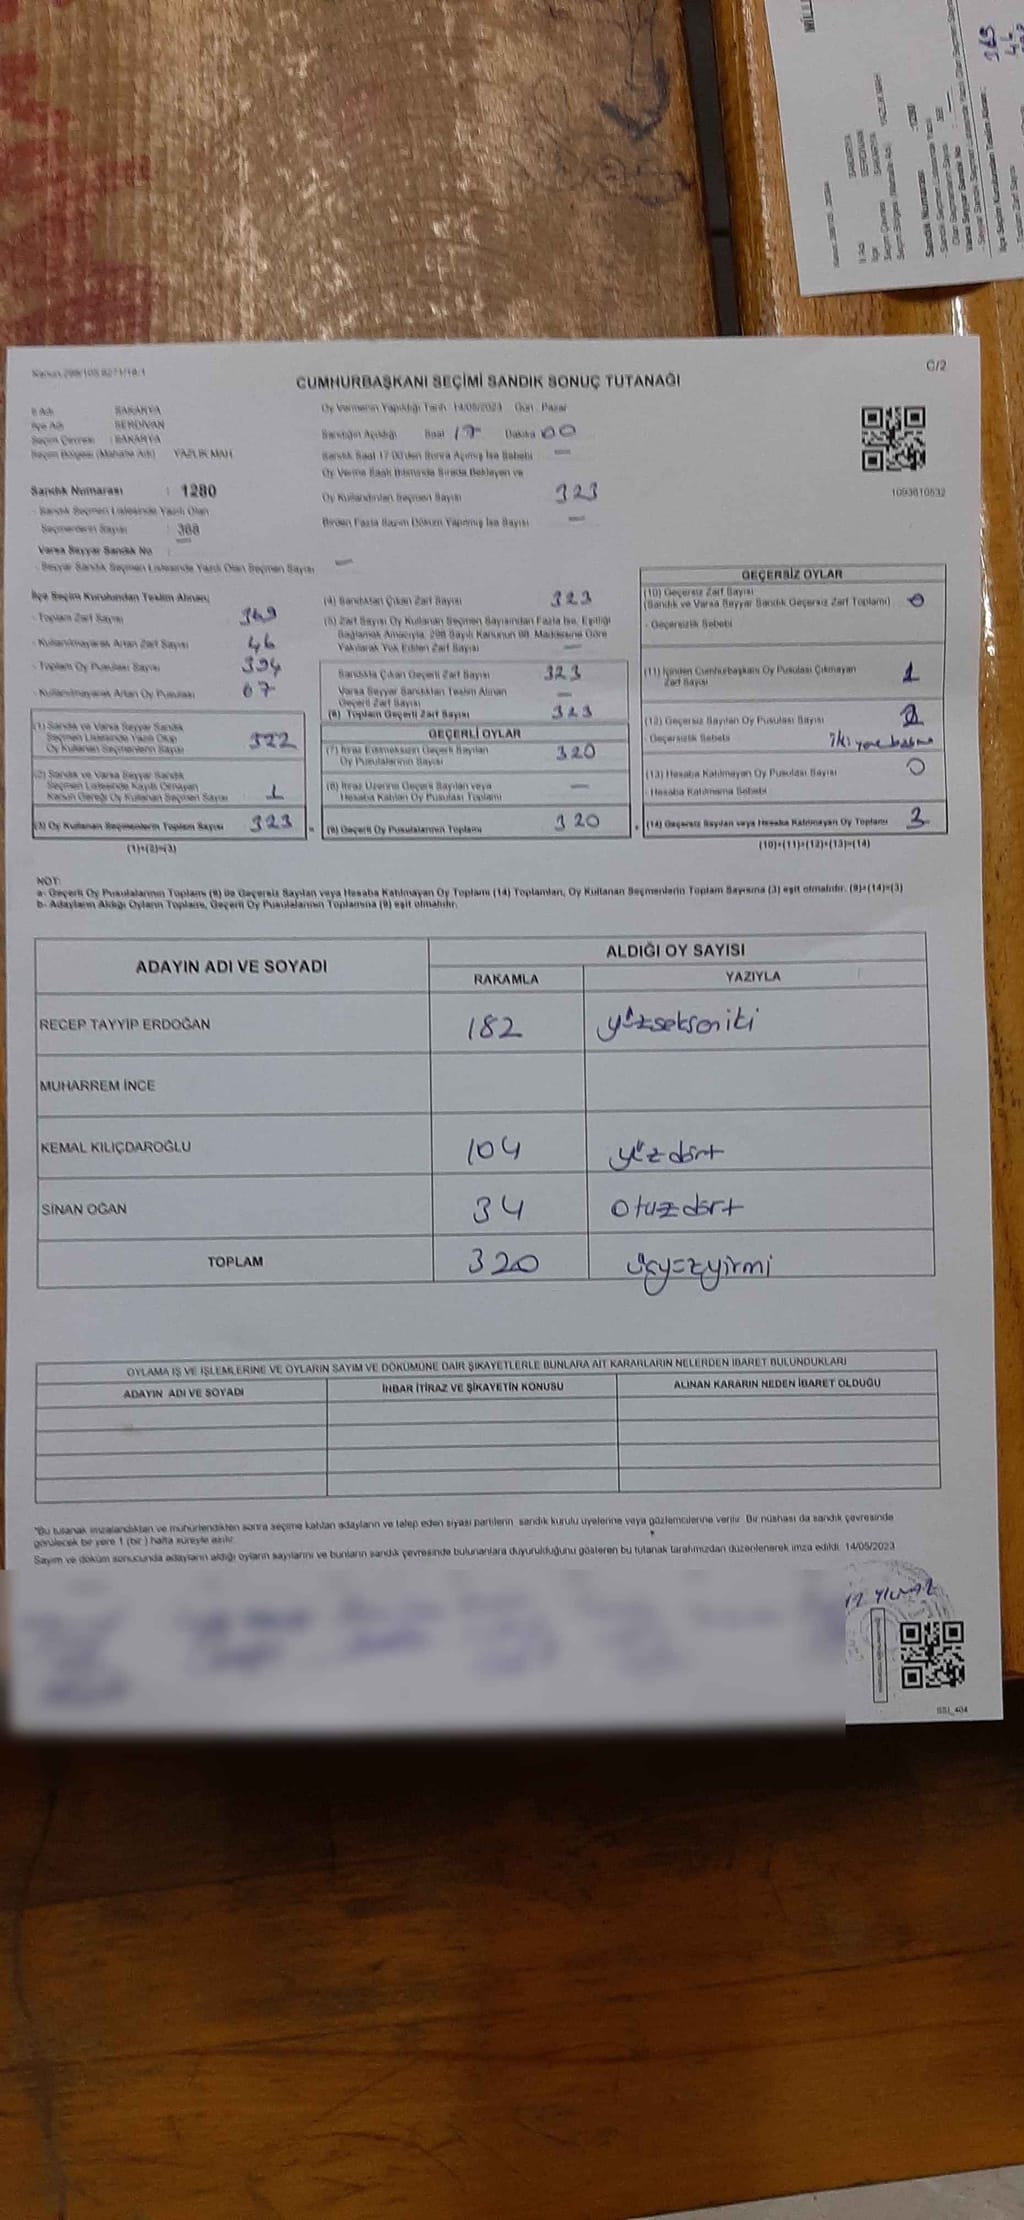 C/2
CUMHURBAŞKANI SEÇİMİ SANDIK SONUÇ TUTANAĞI
İl Adı : SAKARYA
İlçe Adı : SERDİVAN
Seçim Çevresi : SAKARYA
Seçim Bölgesi (Mahalle Adı) : YAZLIK MAH
Sandık Numarası : 1280
- Sandık Seçmen Listesinde Yazılı Olan
Seçmenlerin Sayısı : 368
Varsa Seyyar Sandık No :
- Seyyar Sandık Seçmen Listesinde Yazılı Olan Seçmen Sayısı —
Oy Vermenin Yapıldığı Tarih : 14/05/2023 Gün : Pazar
Sandığın Açıldığı Saat 17 Dakika 00
Sandık Saat 17:00'den Sonra Açılmış İse Sebebi —
Oy Verme Saati Bitiminde Sırada Bekleyen ve
Oy Kullandırılan Seçmen Sayısı 323
Birden Fazla Sayım Döküm Yapılmış İse Sayısı —
1093610532
İlçe Seçim Kurulundan Teslim Alınan;
- Toplam Zarf Sayısı 369
- Kullanılmayarak Artan Zarf Sayısı 46
- Toplam Oy Pusulası Sayısı 394
- Kullanılmayarak Artan Oy Pusulası 67
(1) Sandık ve Varsa Seyyar Sandık
Seçmen Listesinde Yazılı Olup
Oy Kullanan Seçmenlerin Sayısı 322
(2) Sandık ve Varsa Seyyar Sandık
Seçmen Listesinde Kayıtlı Olmayan
Kanun Gereği Oy Kullanan Seçmen Sayısı 1
(3) Oy Kullanan Seçmenlerin Toplam Sayısı 323
(1)+(2)=(3)
(4) Sandıktan Çıkan Zarf Sayısı 323
(5) Zarf Sayısı Oy Kullanan Seçmen Sayısından Fazla İse, Eşitliği
Sağlamak Amacıyla, 298 Sayılı Kanunun 98. Maddesine Göre
Yakılarak Yok Edilen Zarf Sayısı —
Sandıkta Çıkan Geçerli Zarf Sayısı 323
Varsa Seyyar Sandıktan Teslim Alınan
Geçerli Zarf Sayısı —
(6) Toplam Geçerli Zarf Sayısı 323
GEÇERLİ OYLAR
(7) İtiraz Edilmeksizin Geçerli Sayılan
Oy Pusulalarının Sayısı 320
(8) İtiraz Üzerine Geçerli Sayılan veya
Hesaba Katılan Oy Pusulası Toplamı —
= (9) Geçerli Oy Pusulalarının Toplamı 320
GEÇERSİZ OYLAR
(10) Geçersiz Zarf Sayısı
(Sandık ve Varsa Seyyar Sandık Geçersiz Zarf Toplamı) 0
- Geçersizlik Sebebi
(11) İçinden Cumhurbaşkanı Oy Pusulası Çıkmayan
Zarf Sayısı 1
(12) Geçersiz Sayılan Oy Pusulası Sayısı 2
- Geçersizlik Sebebi İki yere basma
(13) Hesaba Katılmayan Oy Pusulası Sayısı 0
- Hesaba Katılmama Sebebi
+ (14) Geçersiz Sayılan veya Hesaba Katılmayan Oy Toplamı 3
(10)+(11)+(12)+(13)=(14)
NOT:
a- Geçerli Oy Pusulalarının Toplamı (9) ile Geçersiz Sayılan veya Hesaba Katılmayan Oy Toplamı (14) Toplamları, Oy Kullanan Seçmenlerin Toplam Sayısına (3) eşit olmalıdır. (9)+(14)=(3)
b- Adayların Aldığı Oyların Toplamı, Geçerli Oy Pusulalarının Toplamına (9) eşit olmalıdır.
ADAYIN ADI VE SOYADI
ALDIĞI OY SAYISI
RAKAMLA YAZIYLA
RECEP TAYYİP ERDOĞAN 182 yüzsekseniki
MUHARREM İNCE
KEMAL KILIÇDAROĞLU 104 yüzdört
SİNAN OĞAN 34 otuzdört
TOPLAM 320 üçyüzyirmi
OYLAMA İŞ VE İŞLEMLERİNE VE OYLARIN SAYIM VE DÖKÜMÜNE DAİR ŞİKAYETLERLE BUNLARA AİT KARARLARIN NELERDEN İBARET BULUNDUKLARI
ADAYIN ADI VE SOYADI İHBAR İTİRAZ VE ŞİKAYETİN KONUSU ALINAN KARARIN NEDEN İBARET OLDUĞU
*Bu tutanak imzalandıktan ve mühürlendikten sonra seçime katılan adayların ve talep eden siyasi partilerin sandık kurulu üyelerine veya gözlemcilerine verilir. Bir nüshası da sandık çevresinde
görülecek bir yere 1 (bir) hafta süreyle asılır.
Sayım ve döküm sonucunda adayların aldığı oyların sayılarını ve bunların sandık çevresinde bulunanlara duyurulduğunu gösteren bu tutanak tarafımızdan düzenlenerek imza edildi. 14/05/2023
YILMAZ
Sandık Numarası :1280
369